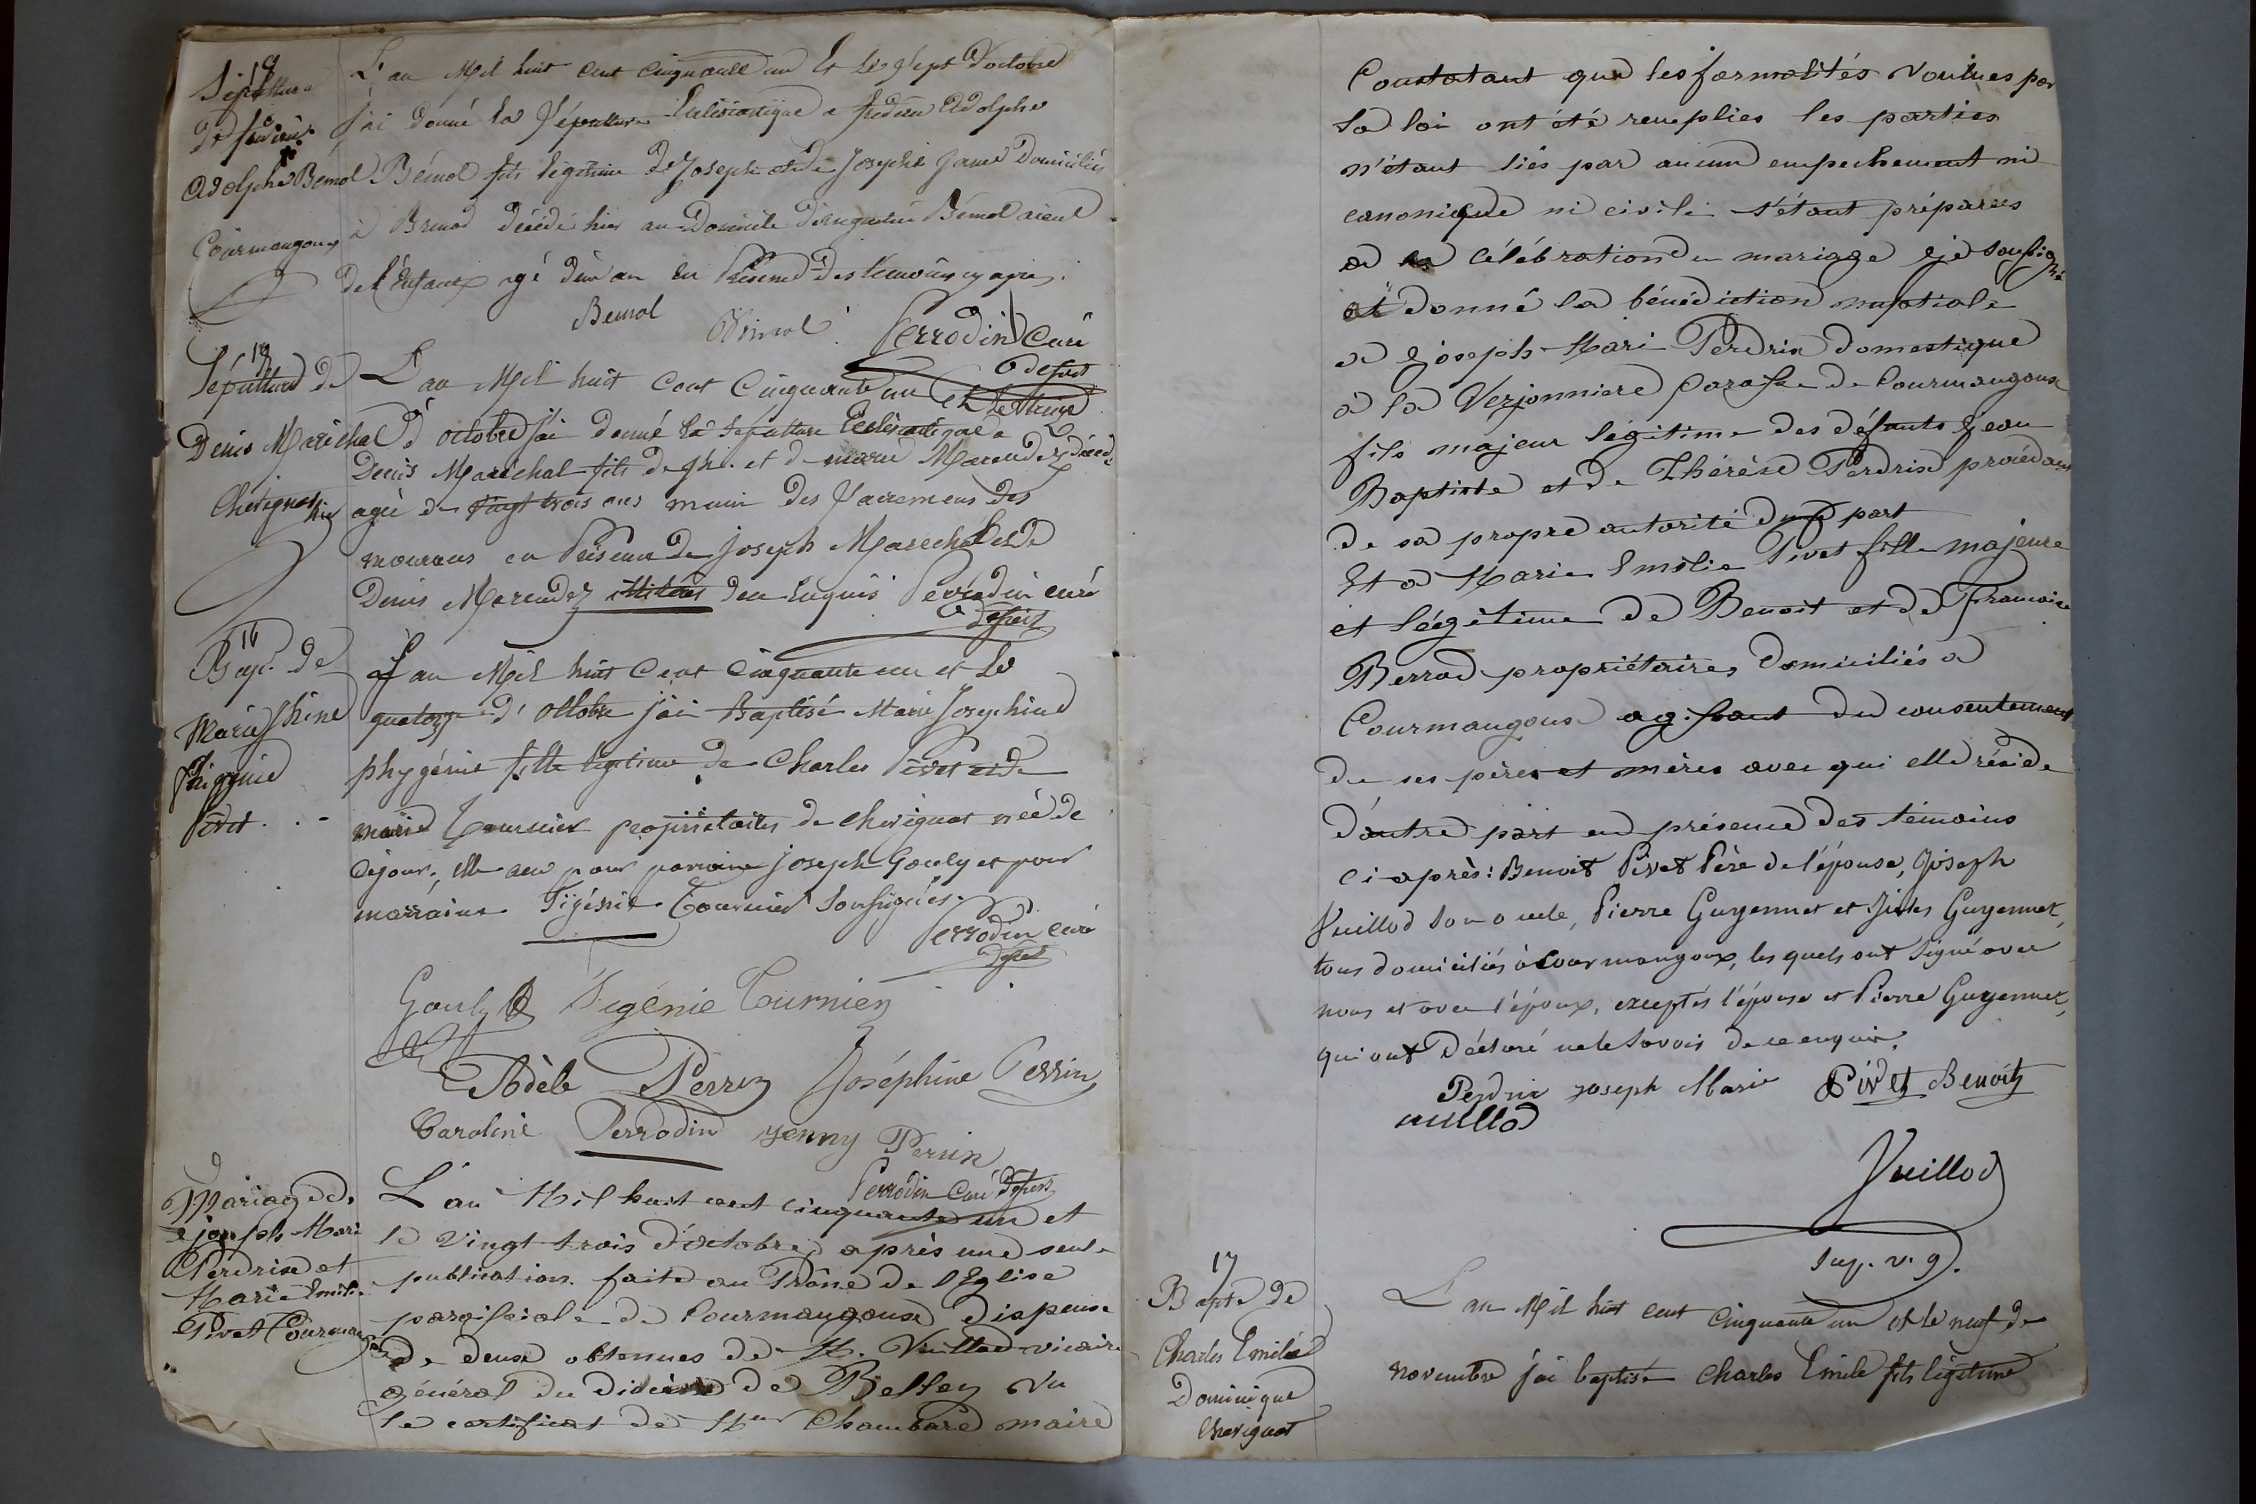 9
Sépulture
de fredéric
Adolphe Bémol
Courmangoux
L'an Mil huit cent cinquante un Et Le Sept d'octobre
j'ai donné la Sépulture Eclésiastique a fredéric Adolphe
Bémol fils légitime de Joseph et de Josephe domiciliés
à décédé hier au Domicile d'augustin Bémol aieul
de l'Enfant agé d'un an En Présence des témoins cy après.
Bemol Bémol Perrodin Curé
Desst
10
Sépulture de
Denis Maréchal
Chevignat
L'an Mil huit Cent Cinquante un Et Le
d'octobre j'ai donné la Sepulture Eclésiastique a
Denis Maréchal fils de et de marie Marendez décédé
agé de vingt trois ans muni des Sacremens des
mourans en Présence de Joseph Maréchal et de
Denis Marendez illiteres de ce Enquis Perrodin curé
Desst
16
Bapt. de
Marie Jphine
Phigénie
Pivet
L'an Mil huit Cent Cinquante un et Le
quatorze d'Octobre j'ai Baptisé Marie Josephine
phygénie fille légitime de Charles Pivet et de
marie Tournier propriétaires de chevignat née de
ce jour; elle a eu pour parrain Joseph Gouly et pour
marraine Figénie Tournier Soussignés.
Perrodin curé
Desst
Gouly Figénie Turnier
Adèle Perrin Joséphine Perrin
Caroline Perrodin Jenny Perrin
Perrodin Curé Desst
Mariage de
Joseph Mari
Perdrix et
Marie Emilie
Pivet Courmangoux
L'an Mil huit cent cinquante un et
le vingt trois d'octobre après une seule
publication faite au Prône de l'Eglise
paroissiale de Courmangoux dispense
de deux obtenues de M. Vuillod vicaire
général du diocèse de Belley vu
le certificat de Mr Chambard maire
Constatant que les formalités voulues par
la loi ont été remplies les parties
n'étant liés par aucun empechement ni
canonique ni civile s'étant préparées
a la célébration du mariage je soussigné
ai donné la bénédiction nuptiale
a Joseph Mari Perdrix domestique
à la Verjonniere paroisse de Courmangoux
fils majeur légitime des défunts Jean
Baptiste et de Thérèse Perdrix procédant
de sa propre autorité d'une part
Et a Marie Emilie Pivet fille majeure
et légitime de Benoit et de Francoise
Berrod propriétaires domiciliés a
Courmangoux agissant du consentement
de ses pères et mères avec qui elle réside
d'autre part en présence des témoins
ci-après: Benoit Pivet Père de l'épouse, Joseph
Vuillod son oncle, Pierre Guyennet et Jules Guyennet,
tous domiciliés à Courmangoux, les quels ont signé avec
nous et avec l'époux, exceptés l'épouse et Pierre Guyennet,
qui ont déclaré ne le savoir de ce enquis.
Perdrix Joseph Marie Pivet Benoit
vuillod
Vuillod
Sup. v. g.
17
Bapte de
Charles Emile
Dominique
Chevignat
L'an Mil huit cent Cinquante un et le neuf de
novembre j'ai baptisé Charles Emile fils légitime